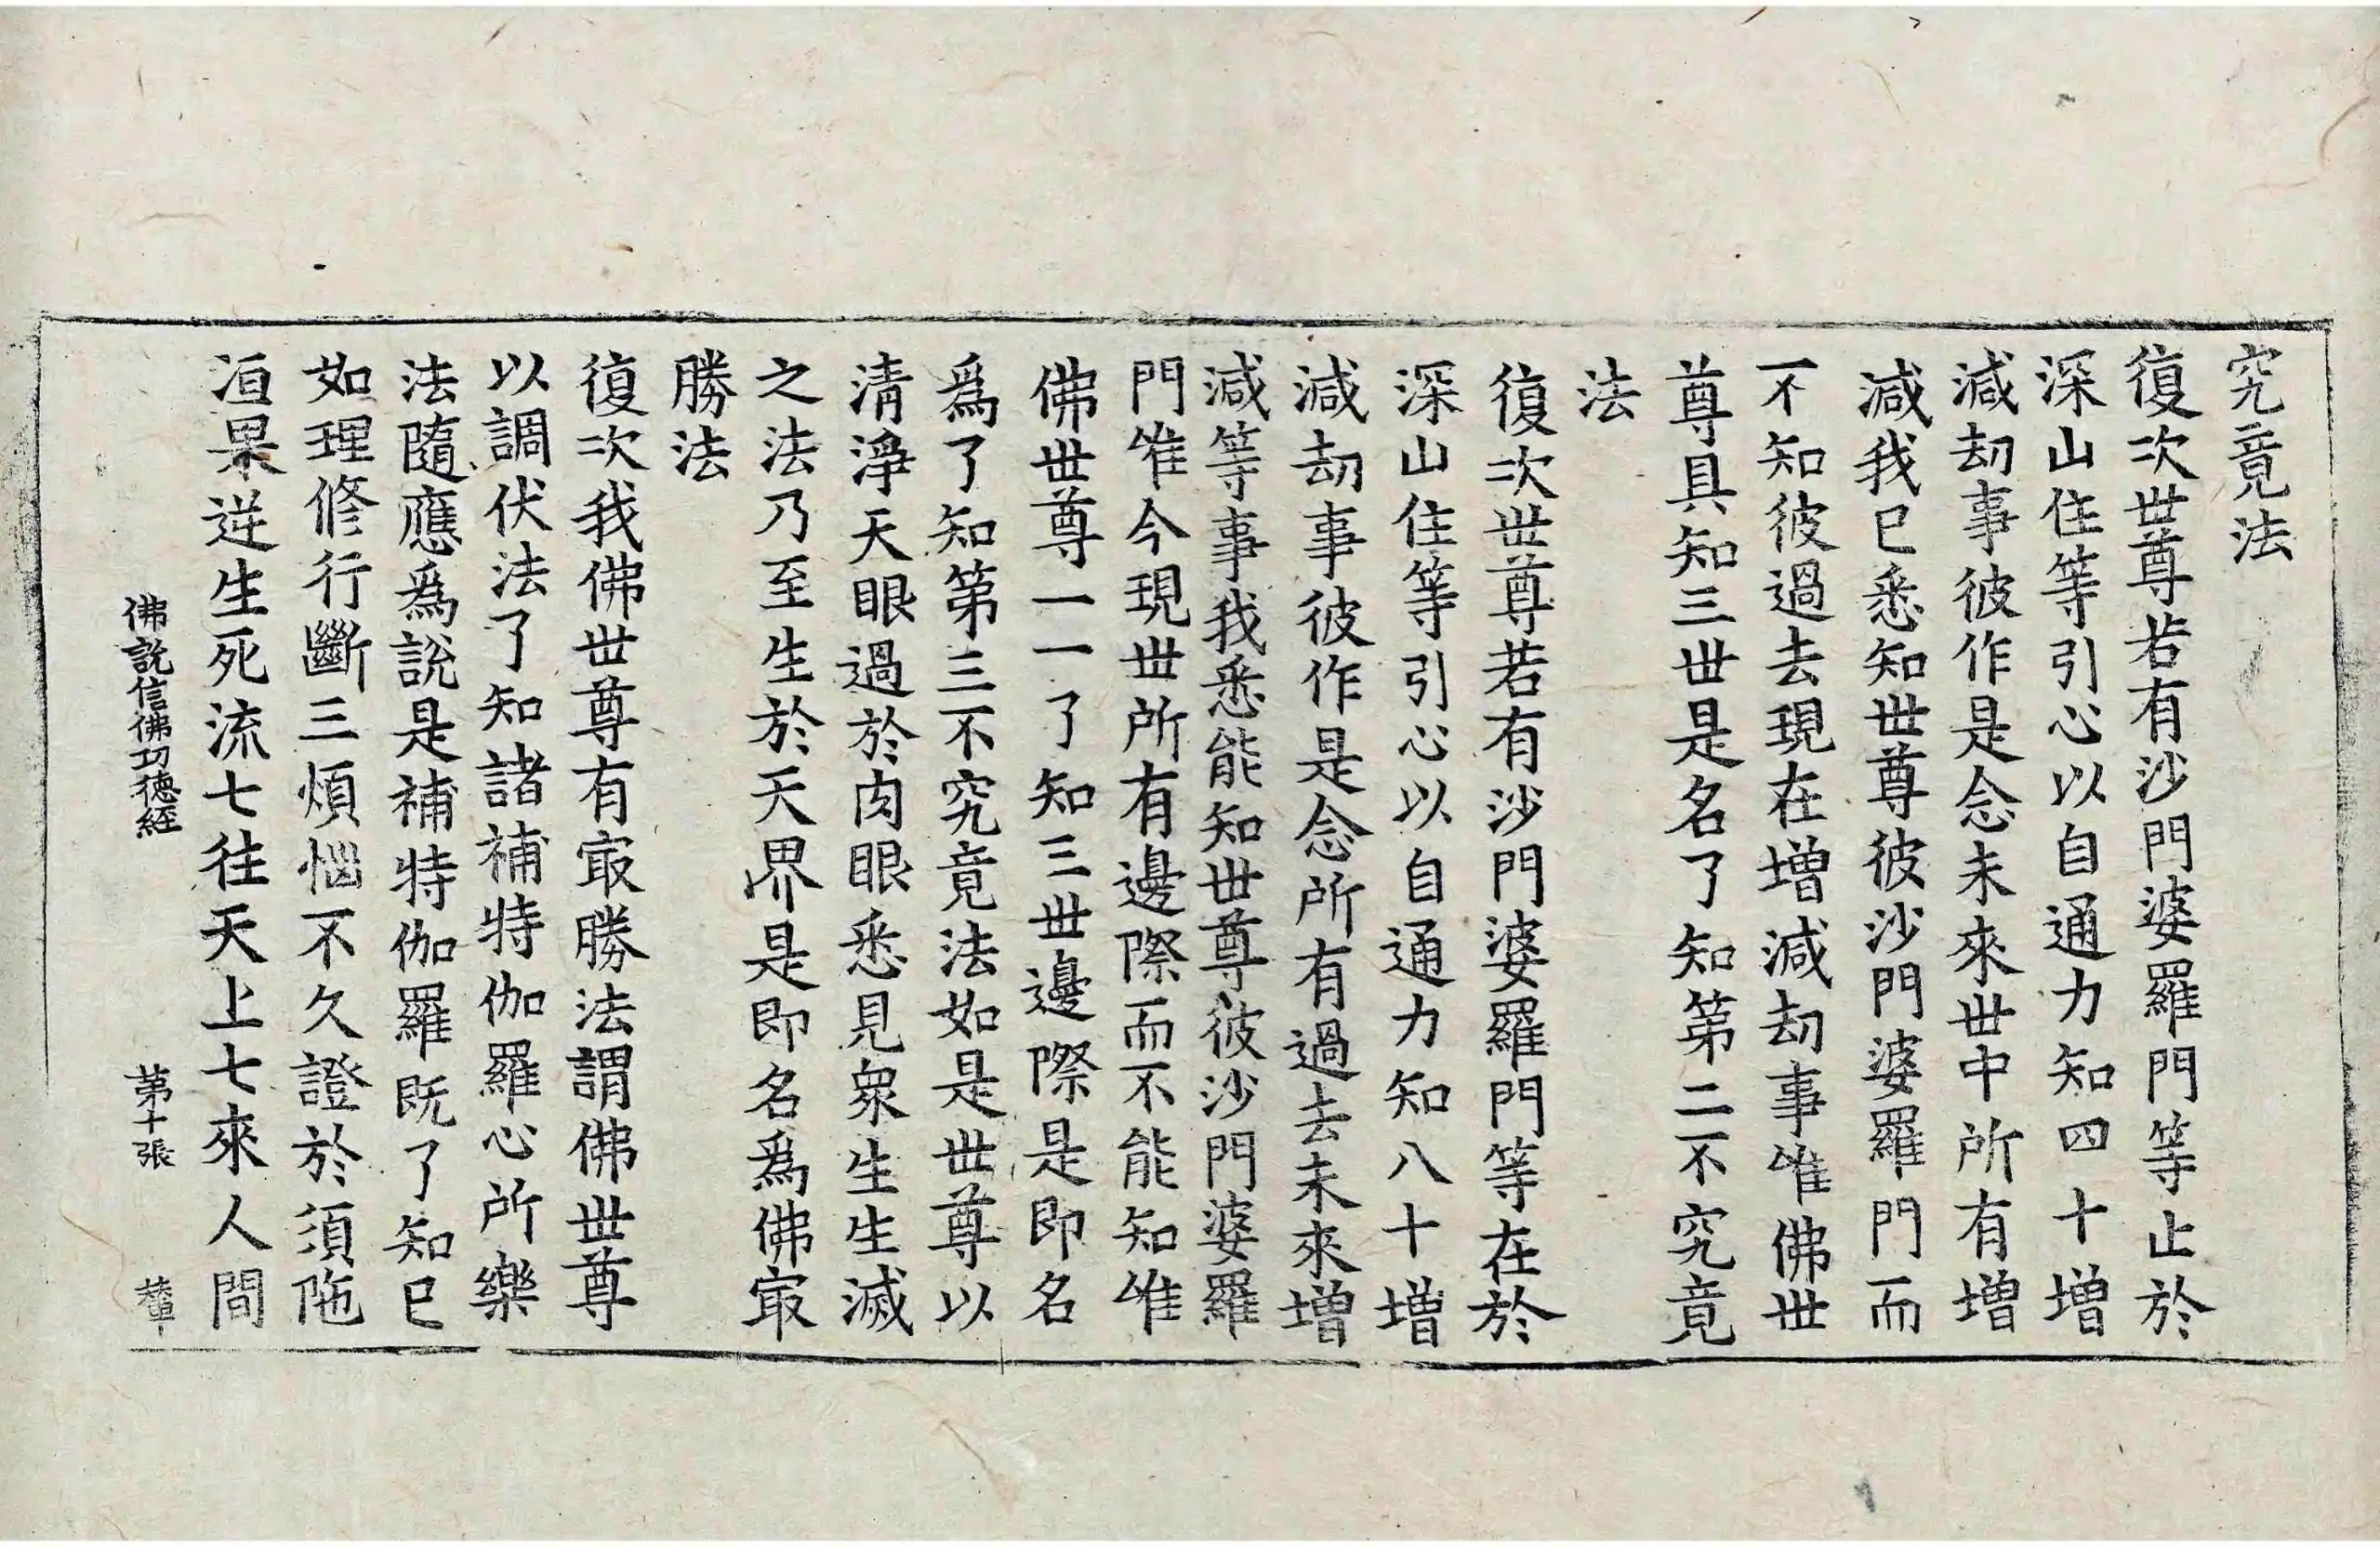 究竟法
復次世尊若有沙門婆羅門等止於
深山住等引心以自通力知四十增
減劫事彼作是念未來世中所有增
減我已悉知世尊彼沙門婆羅門而
不知彼過去現在增減劫事唯佛世
尊具知三世是名了知第二不究竟
法
復次世尊若有沙門婆羅門等在於
深山住等引心以自通力知八十增
減劫事彼作是念所有過去未來增
減等事我悉能知世尊彼沙門婆羅
門唯今現世所有邊際而不能知唯
佛世尊一一了知三世邊際是即名
爲了知第三不究竟法如是世尊以
清淨天眼過於肉眼悉見衆生生滅
之法乃至生於天界是即名爲佛㝡
勝法
復次我佛世尊有㝡勝法謂佛世尊
以調伏法了知諸補特伽羅心所樂
法隨應爲說是補特伽羅既了知已
如理修行斷三煩惱不久證於須陁
洹果逆生死流七往天上七來人間
佛說信佛功德経 第十張